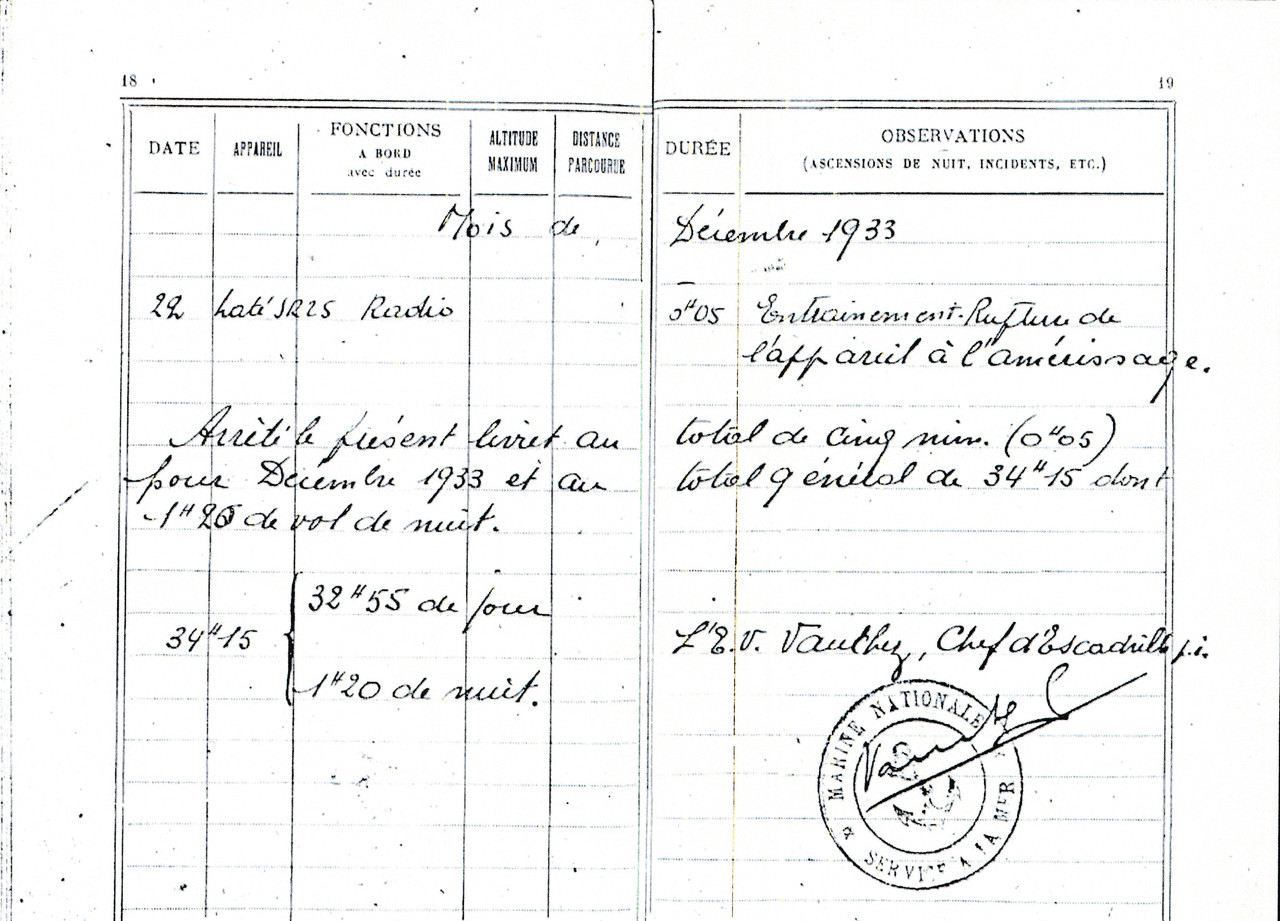 18
19
DATE APPAREIL FONCTIONS A BORD avec durée ALTITUDE MAXIMUM DISTANCE PARCOURUE DURÉE OBSERVATIONS (ASCENSIONS DE NUIT, INCIDENTS, ETC.)
Mois de Décembre 1933
22 Laté 5R25 Radio 0H05 Entrainement. Rupture de
l'appareil à l'amérissage.
Arrêté le présent livret au total de cinq min. (0H05)
pour Décembre 1933 et au total général de 34H15 dont
1H20 de vol de nuit.
32H55 de jour
34H15
1H20 de nuit.
L'E.V. Vauthey, Chef d'Escadrille p.i.
MARINE NATIONALE
SERVICE A LA MER